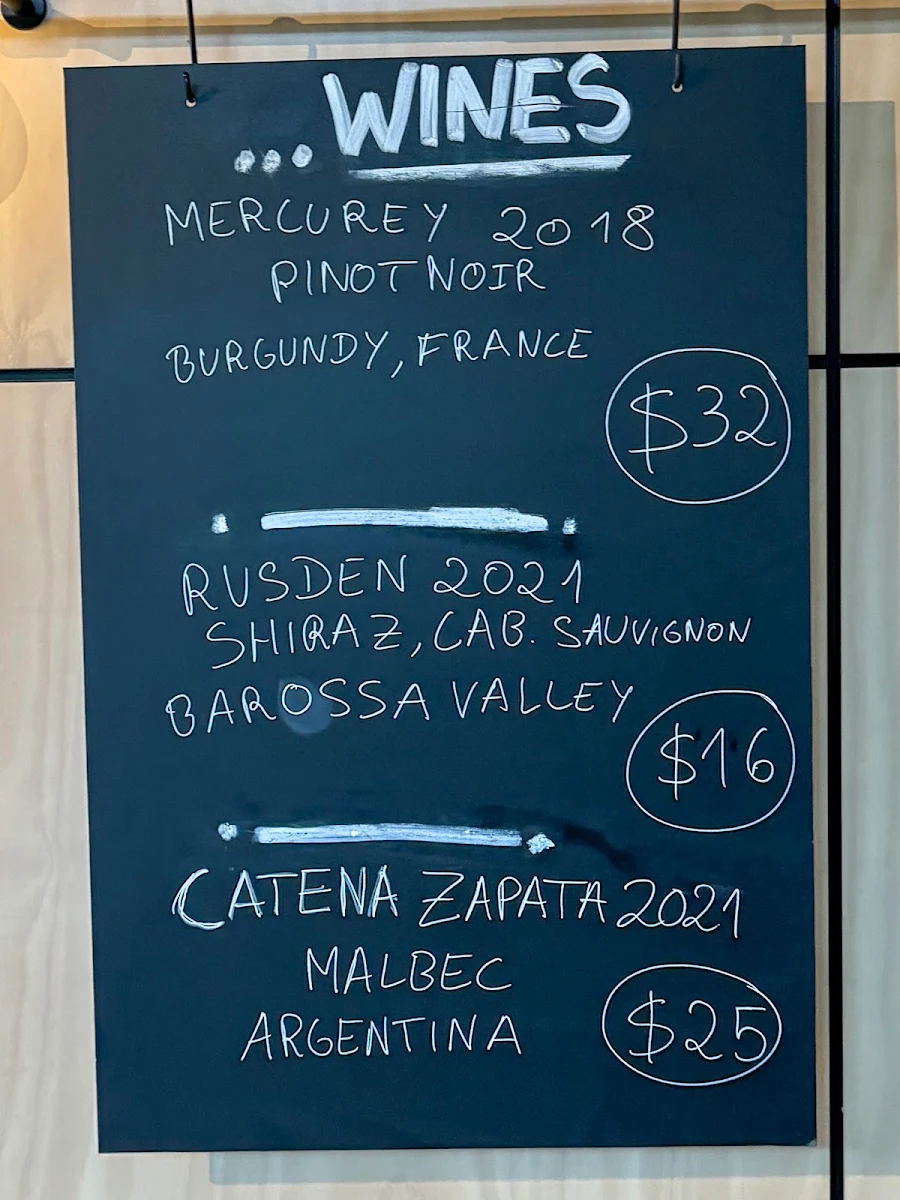 ...WINES
MERCUREY 2018
PINOT NOIR
BURGUNDY, FRANCE
$32
RUSDEN 2021
SHIRAZ, CAB. SAUVIGNON
BAROSSA VALLEY
$16
CATENA ZAPATA 2021
MALBEC
ARGENTINA
$25